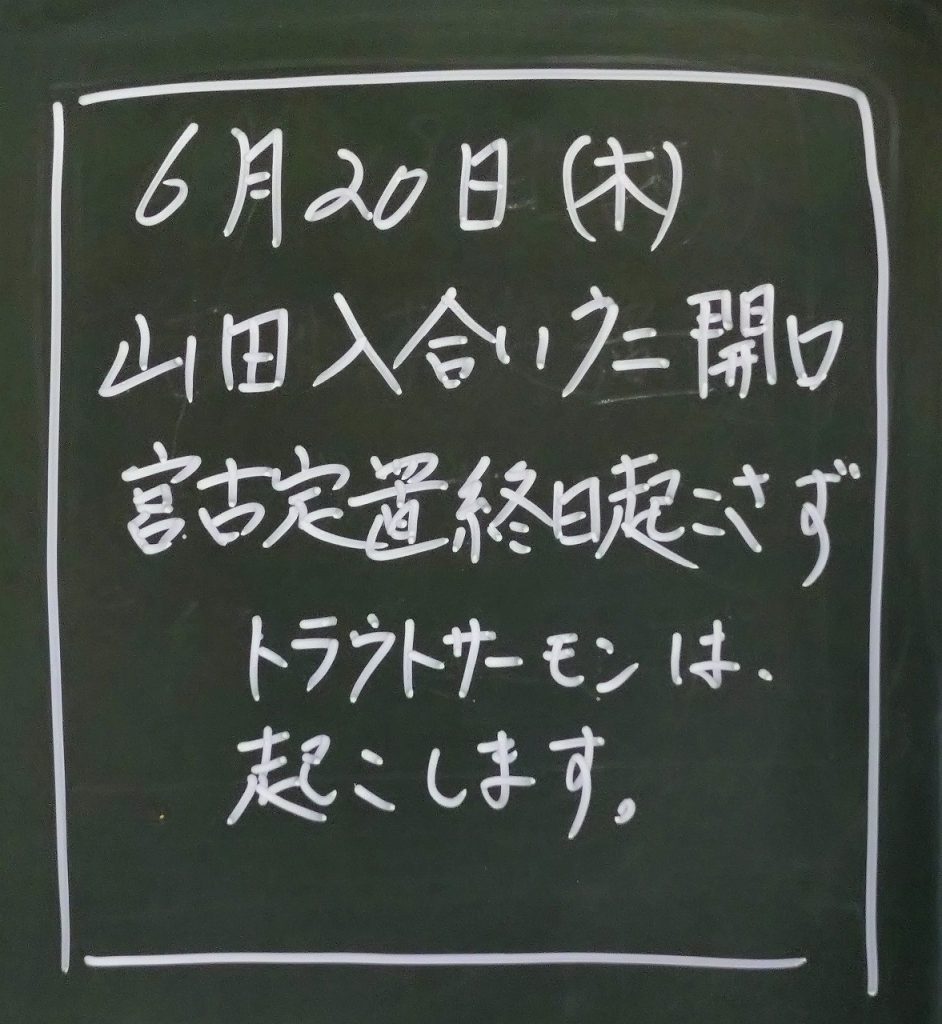 6月20日(木)
山田入合いウニ開口
宮古定置終日起こさず
トラウトサーモンは、
起こします。